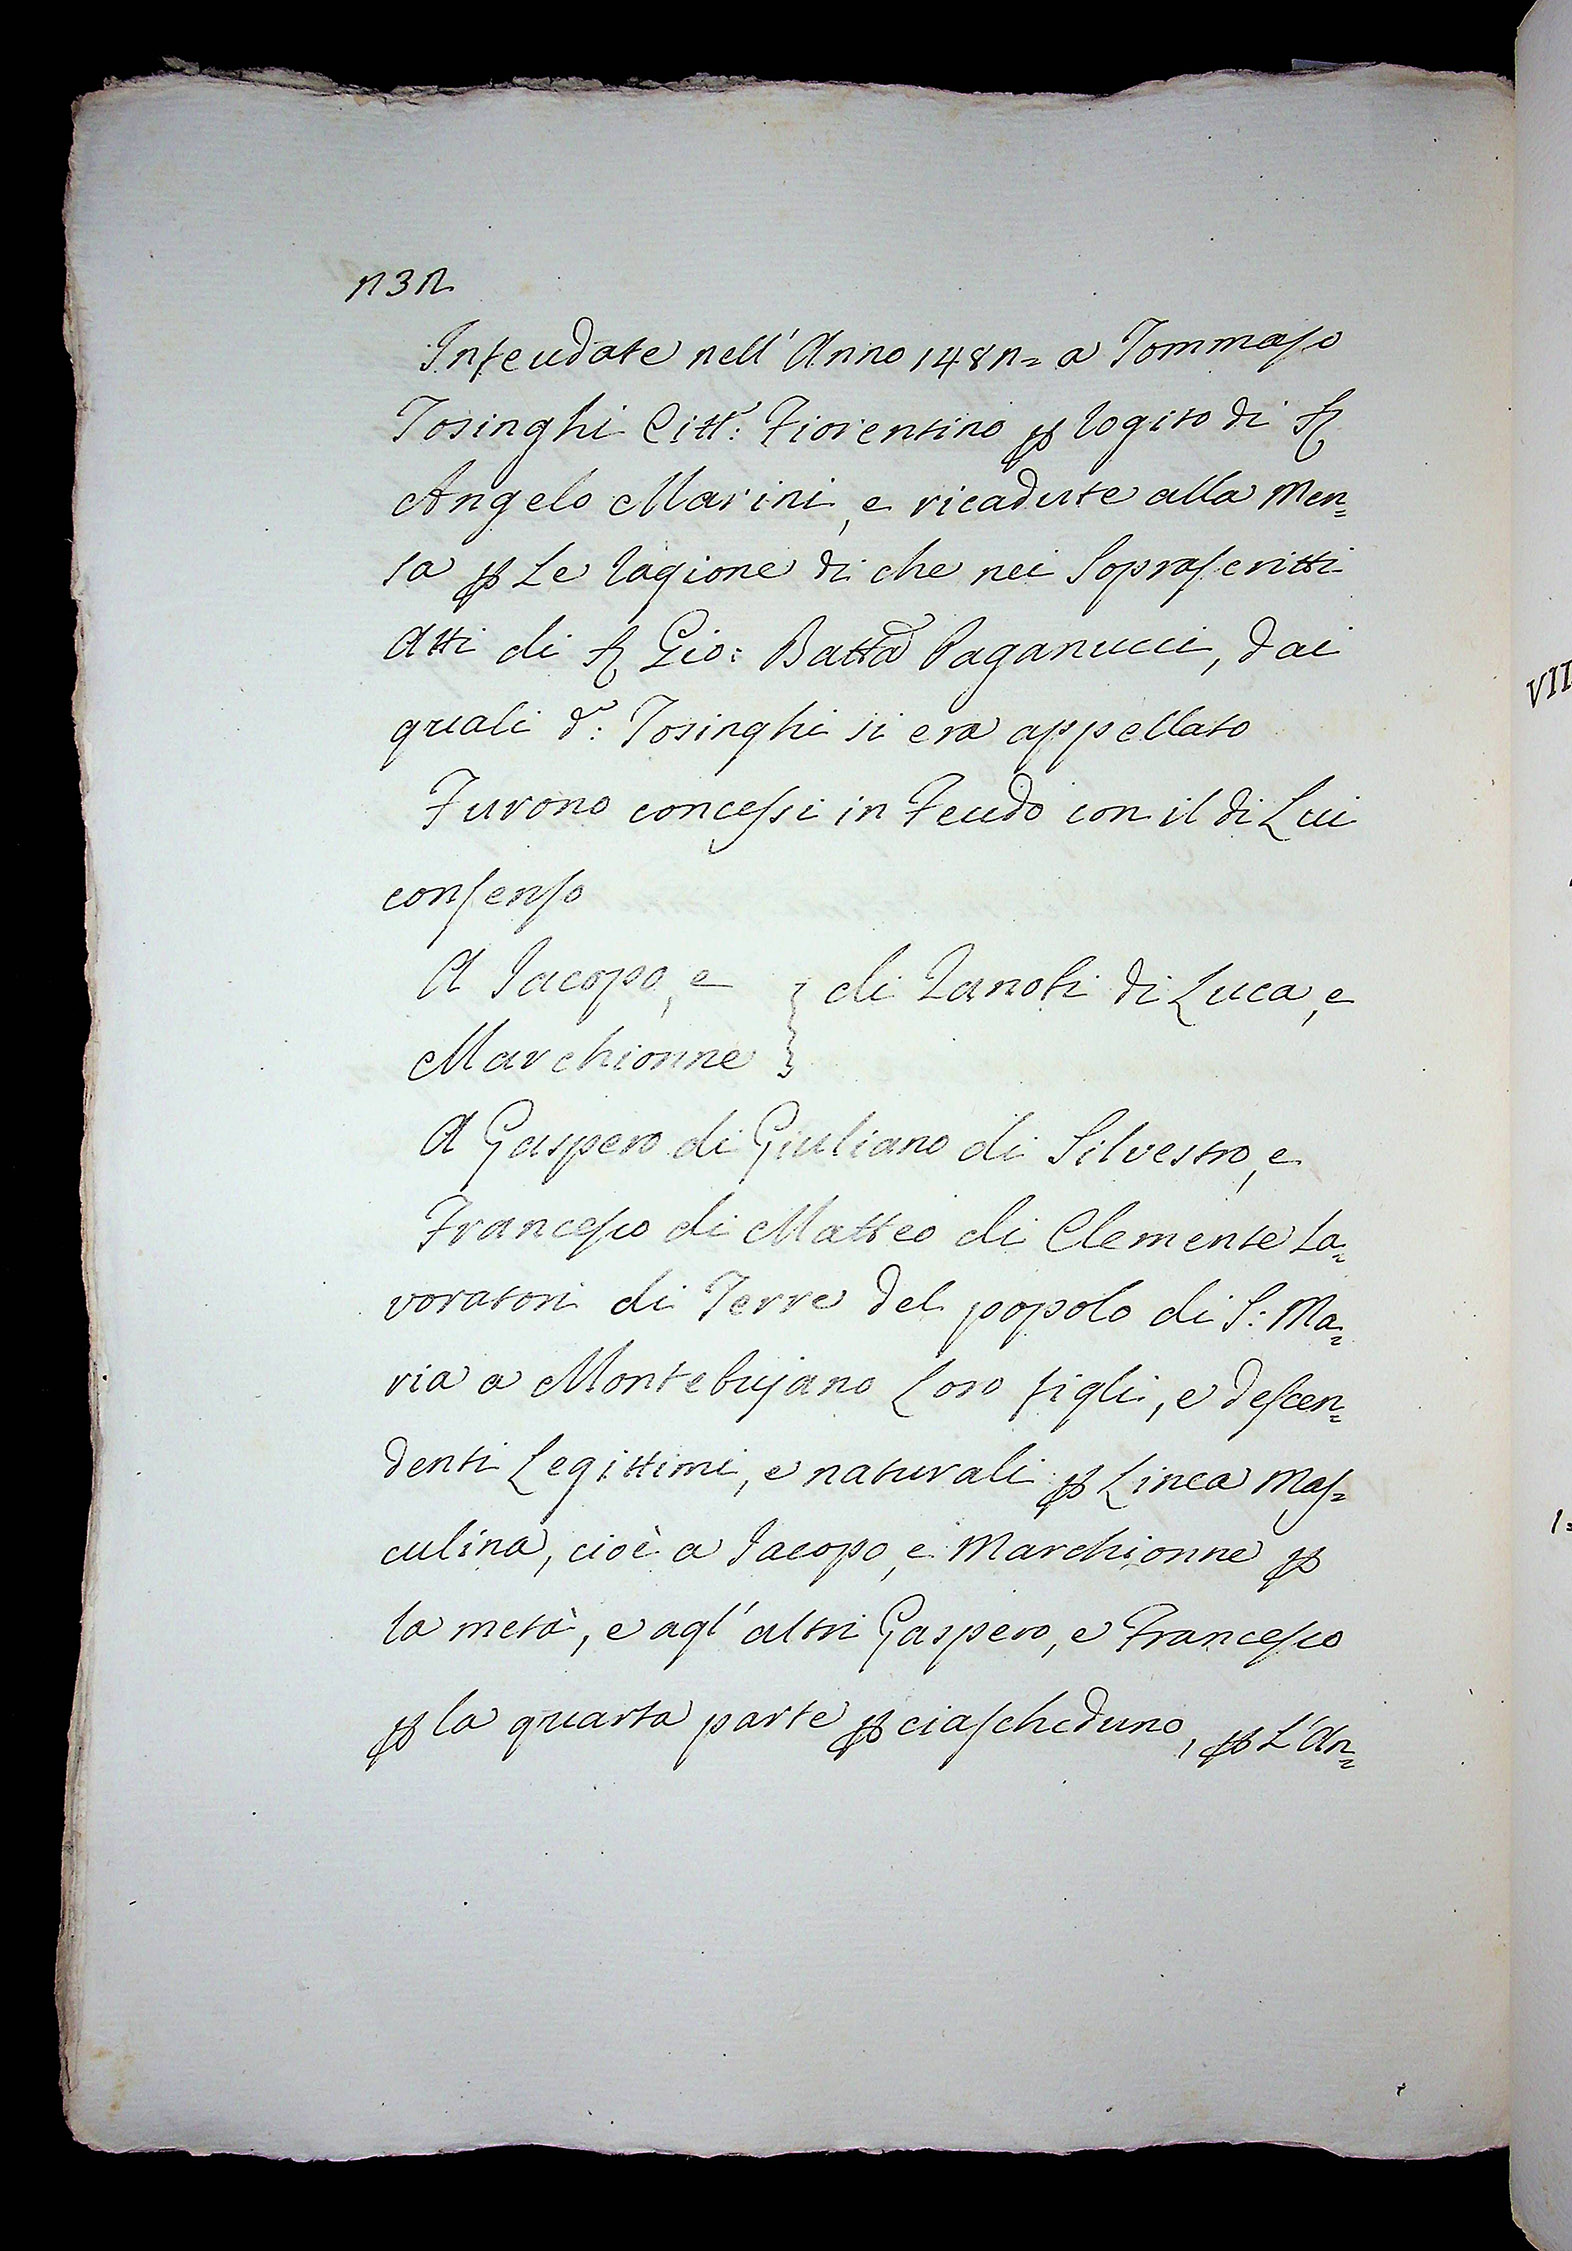 232
Infeudate nell' Anno 1482= a Tommaso
Tosinghi Citt: Fiorentino p rogito di S
Angelo Marini, e ricadute alla Men=
sa p Le ragione di che nei Soprascritti
Atti di S Gio: Batta Paganucci, dai
quali d: Tosinghi si era appellato
Furono concessi in Feudo con il di Lui
consenso
A Jacopo, e } di Zanobi di Luca, e
Marchionne
A Gaspero di Giuliano di Silvestro, e
Francesco di Matteo di Clemente La=
voratori di Terre del popolo di S: Ma=
ria a Montebujano Loro figli, e descen=
denti Legittimi, e naturali p Linea Mas=
culina, cioè a Jacopo, e Marchionne p
la metà, e agl' altri Gaspero, e Francesco
p la quarta parte p ciascheduno, p L'An=
VII
1=